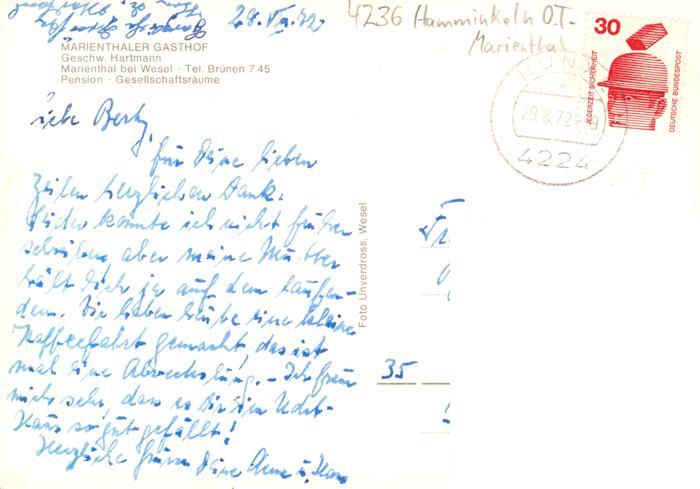 28. VIII. 72
4236 Hamminkeln O.T.-
Marienthal
30
JEDERZEIT SICHERHEIT
DEUTSCHE BUNDESPOST
HÜNXE
29.8.72
4224
MARIENTHALER GASTHOF
Geschw. Hartmann
Marienthal bei Wesel · Tel. Brünen 7 45
Pension · Gesellschaftsräume
Liebe Berty,
für Deine lieben
Zeilen herzlichen Dank.
Leider konnte ich nicht früher
schreiben aber meine Mutter
hält Dich ja auf dem laufen-
den. Wir haben heute eine kleine
Kaffeefahrt gemacht, das ist
mal eine Abwechslung. – Ich freue
mich sehr, dass es Dir im
Haus so gut gefällt!
Herzliche Grüsse Deine u.
Foto Unverdross, Wesel
35